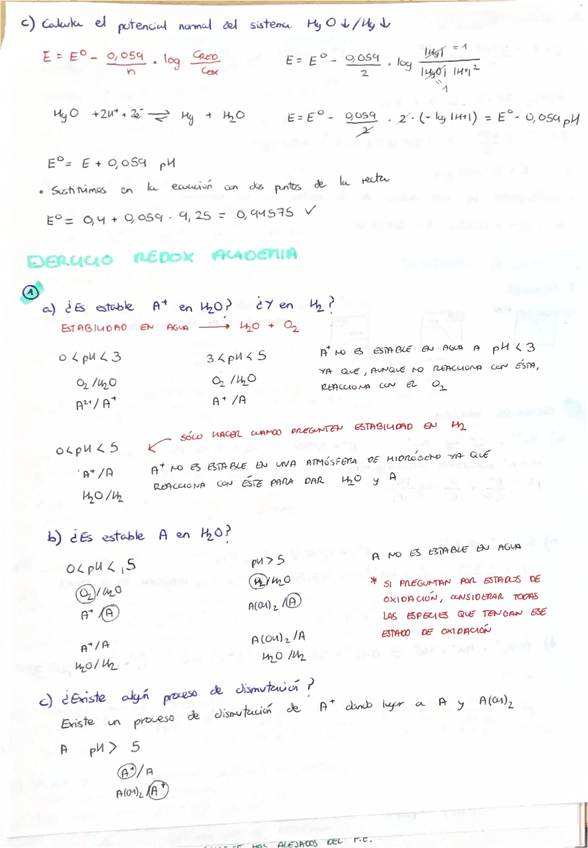 c) Calcula el potencial normal del sistema HgO↓/Hg↓
E = E⁰ - 0,059/n · log Cred/Cox
E = E⁰ - 0,059/2 · log |Hg| = 1 / |HgO| |H+|² = 1
HgO + 2H⁺ + 2e⁻ ⇌ Hg + H₂O
E = E⁰ - 0,059/2 · 2 · (-log |H+|) = E⁰ - 0,059 pH
E⁰ = E + 0,059 pH
• Sustituimos en la ecuación con dos puntos de la recta
E⁰ = 0,4 + 0,059 · 9,25 = 0,94575 ✓
EJERCICIO REDOX ACADEMIA
1
a) ¿Es estable A⁺ en H₂O? ¿Y en H₂?
ESTABILIDAD EN AGUA → H₂O + O₂
0 < pH < 3
3 < pH < 5
O₂/H₂O
O₂/H₂O
A²⁺/A⁺
A⁺/A
A⁺ NO ES ESTABLE EN AGUA A pH < 3
YA QUE, AUNQUE NO REACCIONA CON ÉSTA,
REACCIONA CON EL O₂
SÓLO HACER CUANDO PREGUNTEN ESTABILIDAD EN H₂
0 < pH < 5
A⁺/A
H₂O/H₂
A⁺ NO ES ESTABLE EN UNA ATMÓSFERA DE HIDRÓGENO YA QUE
REACCIONA CON ÉSTE PARA DAR H₂O y A
b) ¿Es estable A en H₂O?
0 < pH < 5
pH > 5
O₂/H₂O
H₂/H₂O
A⁺/A
A(OH)₂/A
A⁺/A
A(OH)₂/A
H₂O/H₂
H₂O/H₂
A NO ES ESTABLE EN AGUA
* SI PREGUNTAN POR ESTADOS DE
OXIDACIÓN, CONSIDERAR TODAS
LAS ESPECIES QUE TENGAN ESE
ESTADO DE OXIDACIÓN
c) ¿Existe algún proceso de dismutación?
Existe un proceso de dismutación de A⁺ dando lugar a A y A(OH)₂
A pH > 5
A⁺/A
A(OH)₂/A⁺
ALEJADOS DEL F.E.